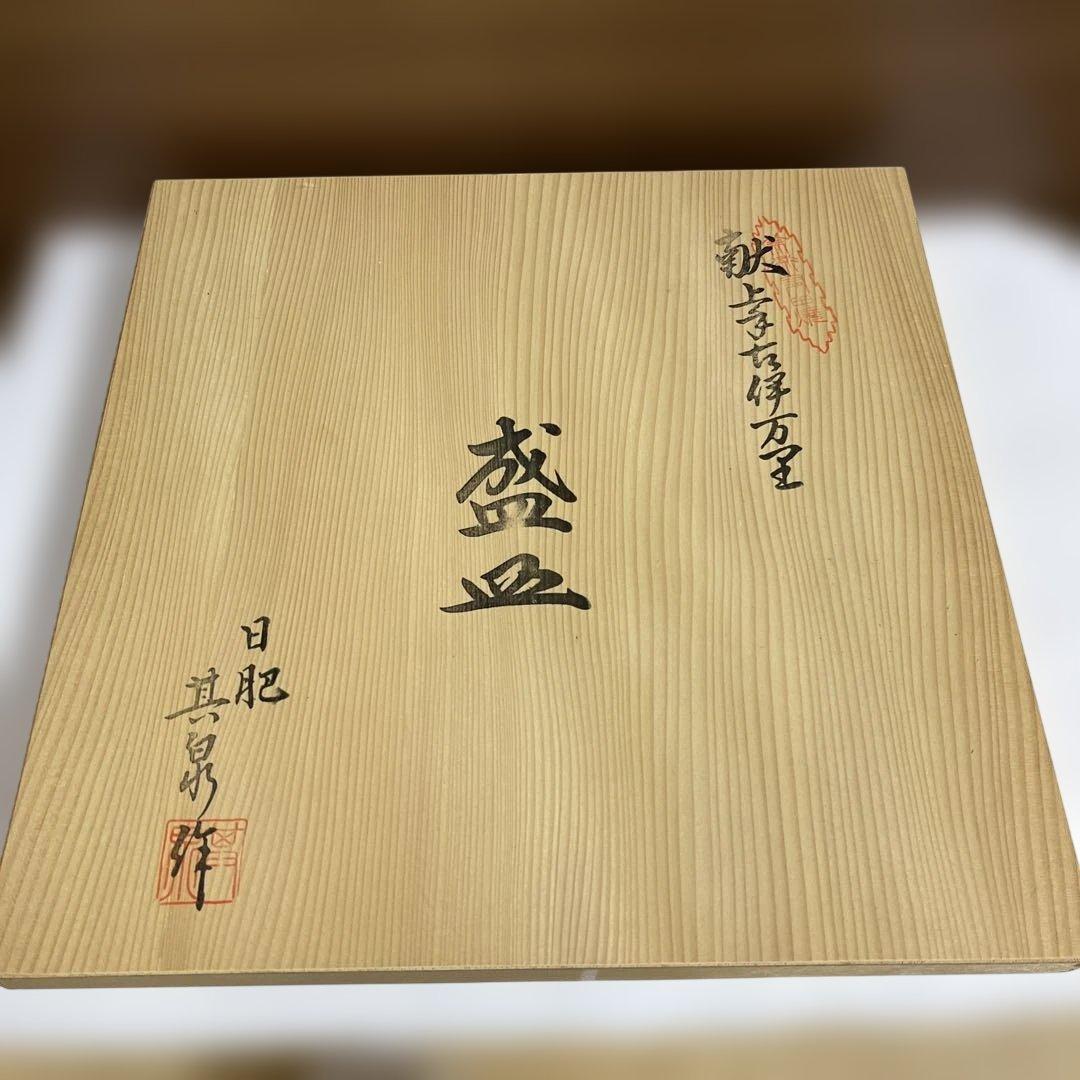 献上手古伊万里
盛皿
日肥
其泉作